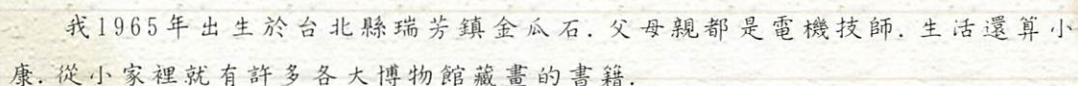 我1965年出生於台北縣瑞芳鎮金瓜石.父母親都是電機技師.生活還算小
康.從小家裡就有許多各大博物館藏畫的書籍.